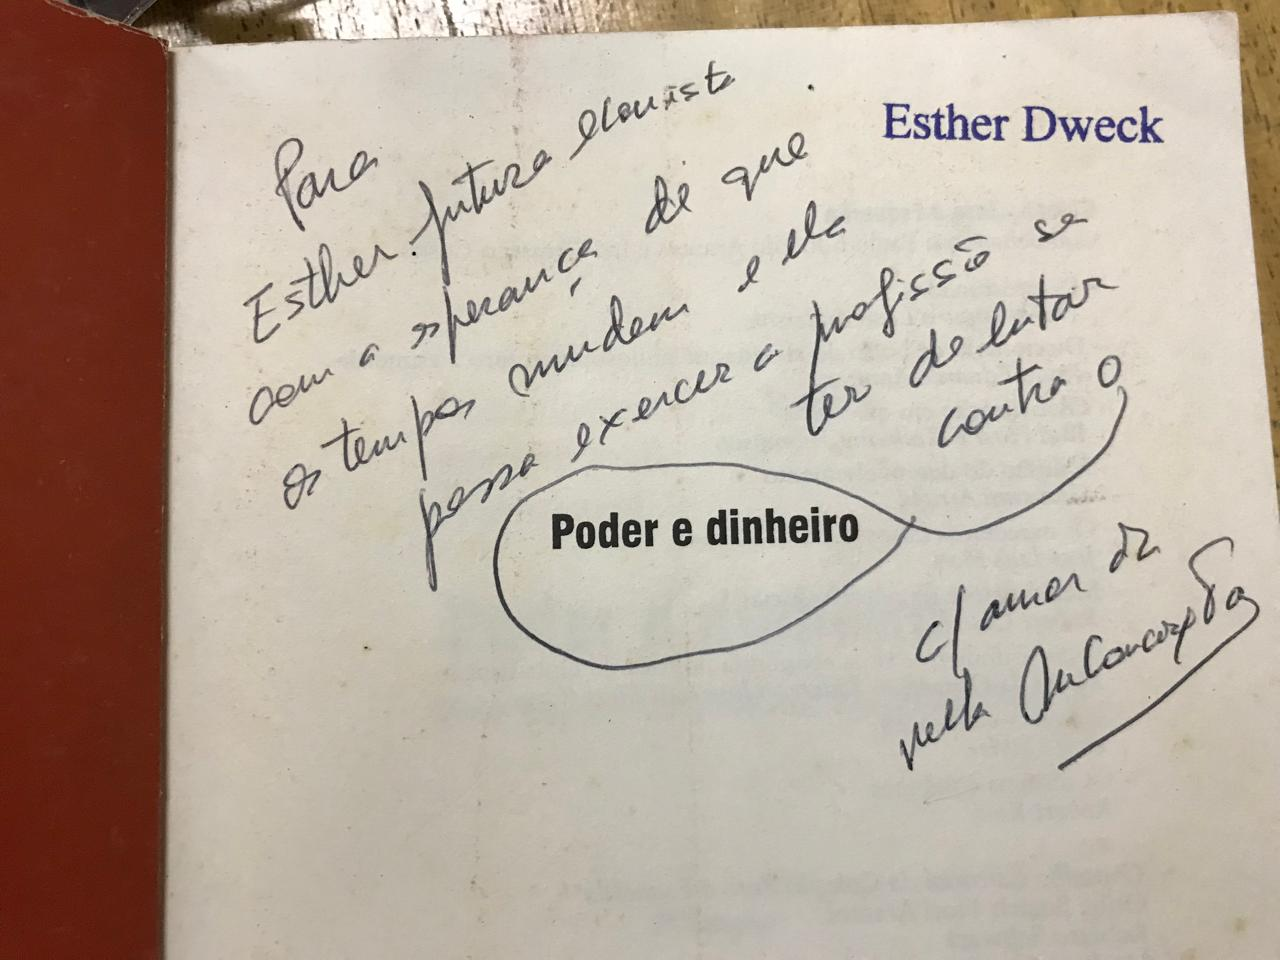 Esther Dweck
Para
Esther futura economista
com a esperança de que
os tempos mudem e ela
possa exercer a profissão se
ter de lutar
contra o
Poder e dinheiro
c/ amor da
velha